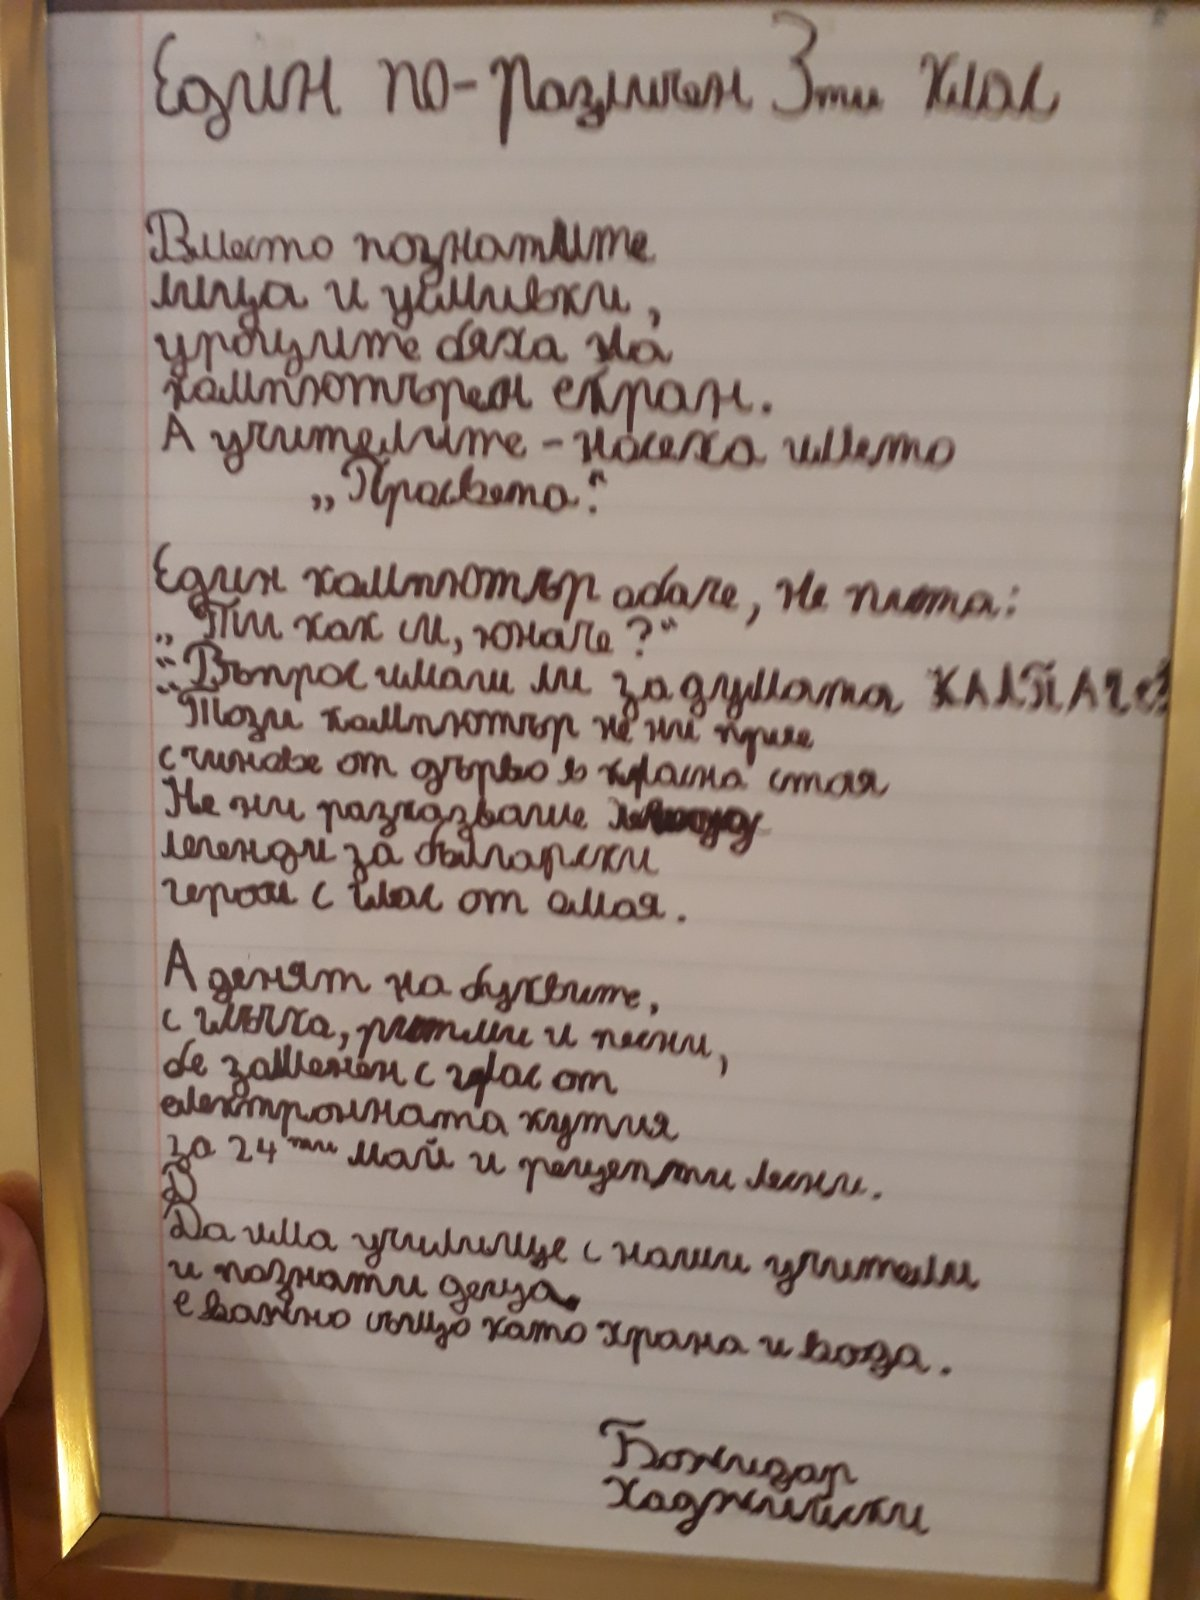 Един по-различен 3ти клас
Вместо познатите
лица и усмивки,
уроците бяха на
компютърен екран.
А учителите - носеха името
„Просвета“.
Един компютър обаче, не пита:
„Ти как си, юначе?“
„Въпрос имаш ли за думата КАЛПАЧЕ?
Този компютър не ни прие
с чинове от дърво в класна стая
Не ни разказваше
легенди за български
герои с глас от омая.
А денят на буквите,
с глъчка, ритми и песни,
бе заменен с глас от
електронната кутия
за 24ти май и рецепти лесни.
Д
Да има училище с наши учители
и познати деца.
е важно също като храна и вода.
Божидар
Хаджийски